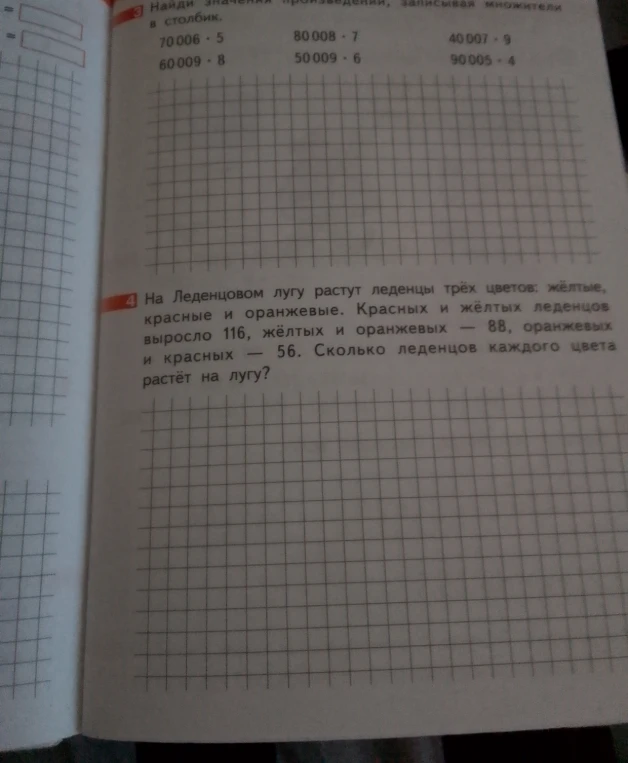 =
=
3 Найди значения произведений, записывая множители
в столбик.
70 006 · 5 80 008 · 7 40 007 · 9
60 009 · 8 50 009 · 6 90 005 · 4
4 На Леденцовом лугу растут леденцы трёх цветов: жёлтые,
красные и оранжевые. Красных и жёлтых леденцов
выросло 116, жёлтых и оранжевых — 88, оранжевых
и красных — 56. Сколько леденцов каждого цвета
растёт на лугу?